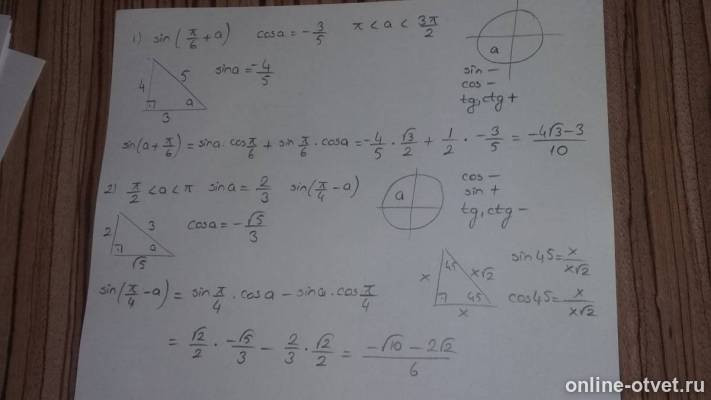 1) sin(π/6 + a) cosa = -3/5 π < a < 3π/2
a
4 5 3 a
sina = -4/5
sin -
cos -
tg, ctg +
sin(a + π/6) = sina · cosπ/6 + sinπ/6 · cosa = -4/5 · √3/2 + 1/2 · -3/5 = -4√3-3/10
2) π/2 < a < π sina = 2/3 sin(π/4 - a)
a
cos -
sin +
tg, ctg -
2 3 √5 a
cosa = -√5/3
x 45 x√2 45 x
sin45 = x/x√2
cos45 = x/x√2
sin(π/4 - a) = sinπ/4 · cosa - sina · cosπ/4
= √2/2 · -√5/3 - 2/3 · √2/2 = -√10 - 2√2/6
online-otvet.ru